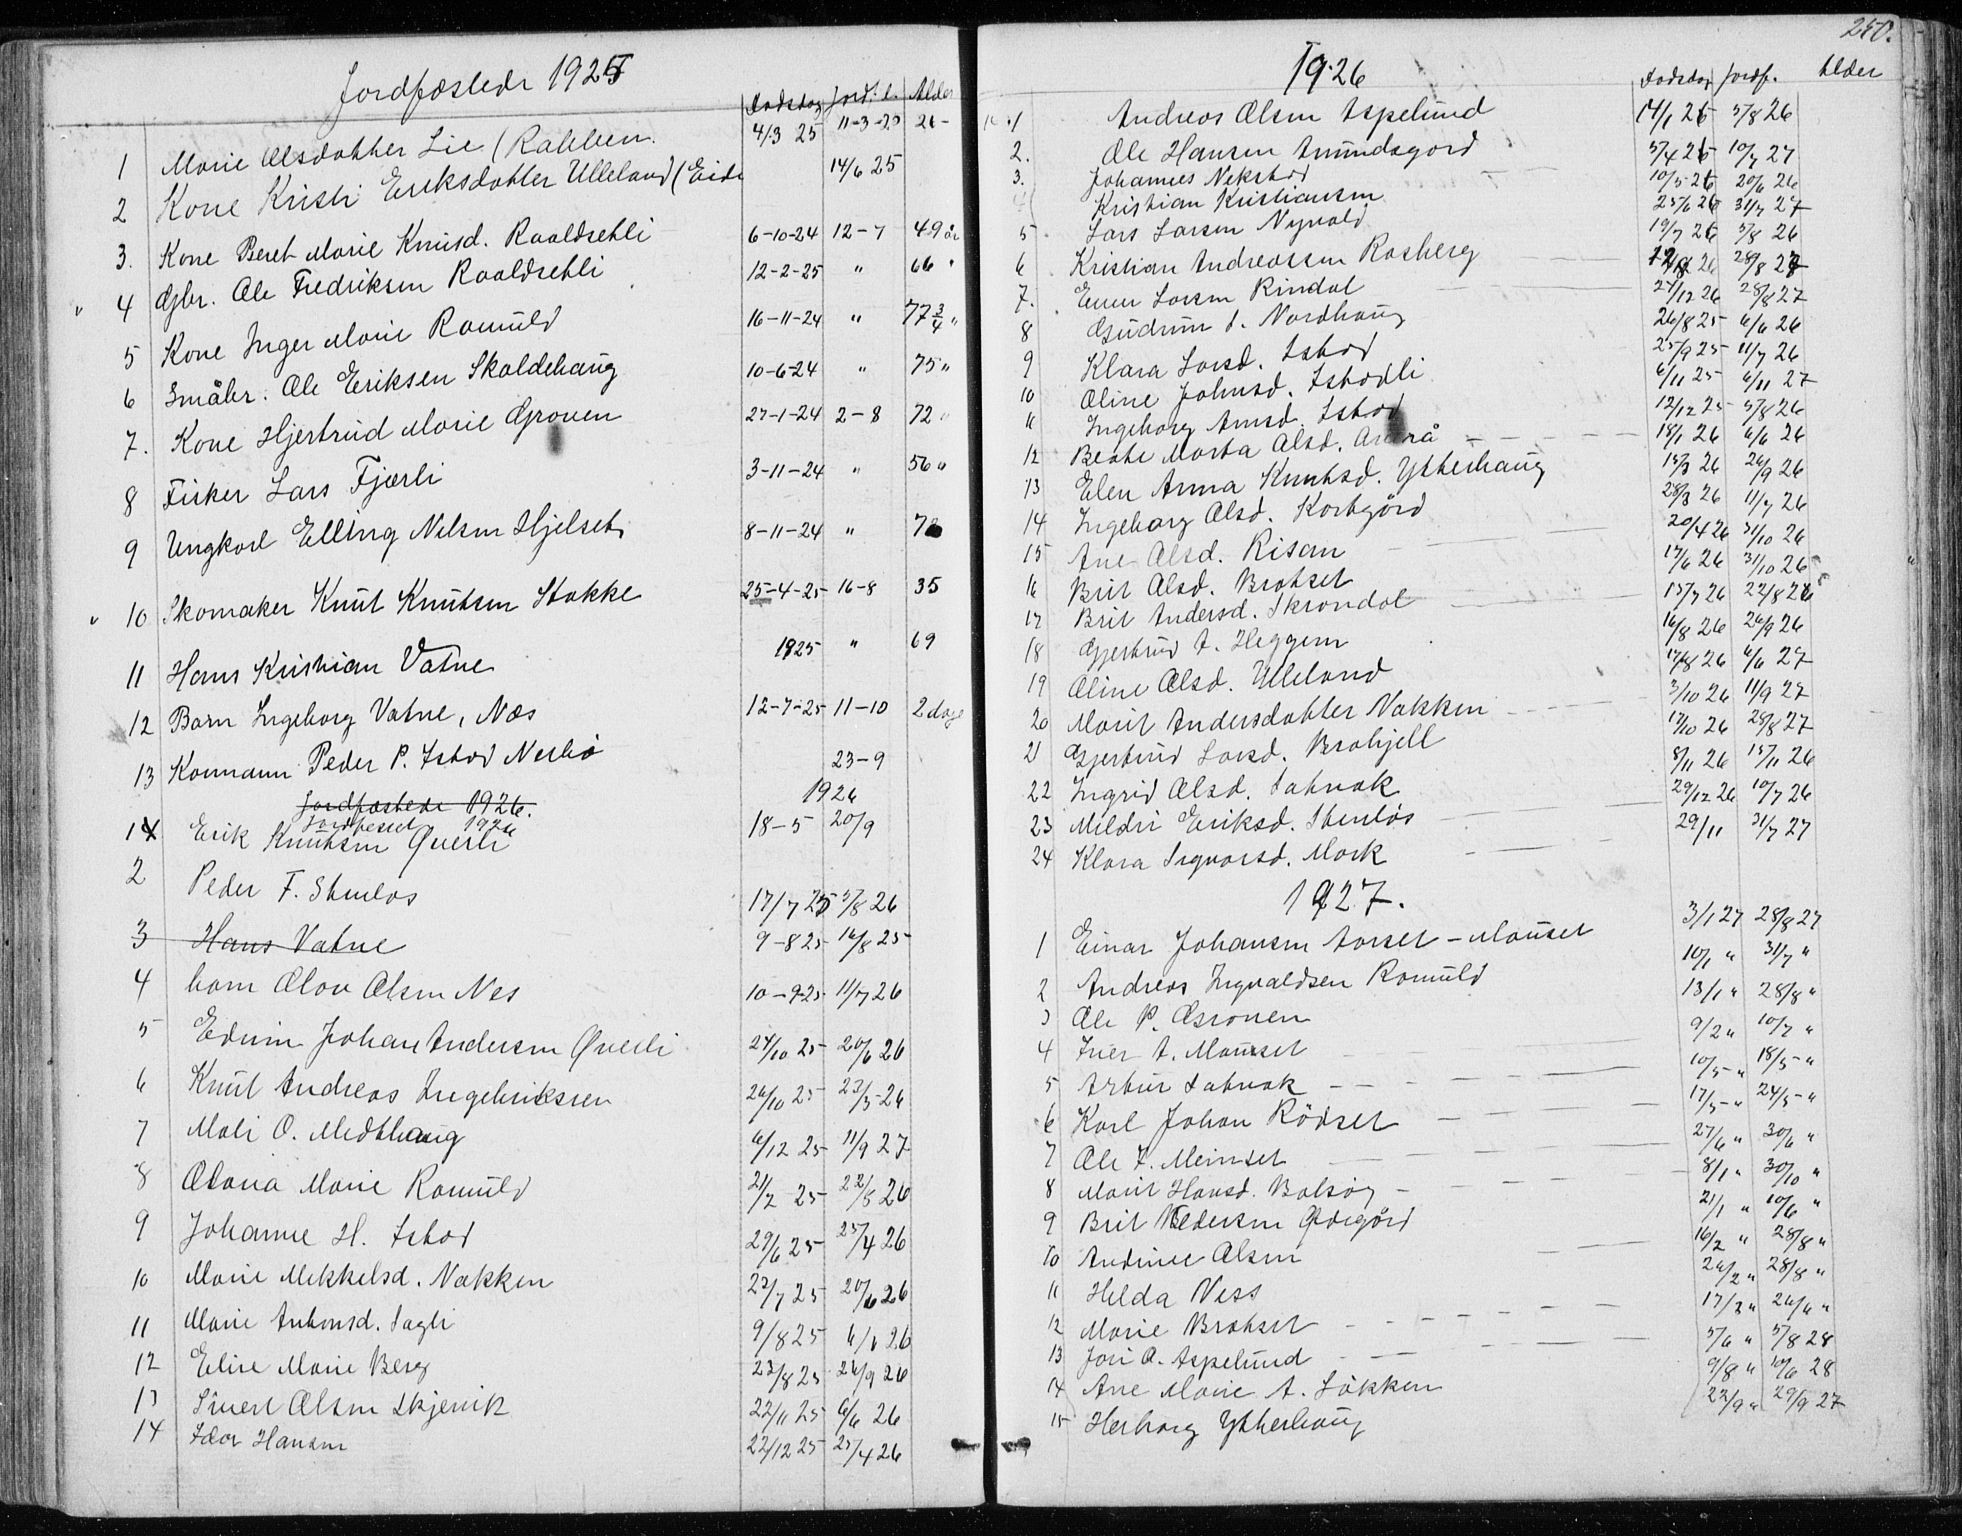 Jordfæstede 1925
Dødsdag Jordf. d. Alder
1 Marie Olsdatter Lie (Rakben. 4/3 25 11-3-25 26-
2 Kone Kristi Eriksdatter Ulleland (Eide 14/6 25
3. Kone Beret Marie Knusd. Raaldsetli 6-10-24 12-7 49 år
4 Gbr. Ole Fredriksen Raaldsetli 12-2-25 " 66 "
5 Kone Inger Marie Romuld 16-11-24 " 77 3/4 "
6 Småbr. Ole Eriksen Skaldehaug 10-6-24 " 75 "
7. Kone Hjertrud Marie Gronen 27-1-24 2-8 72 "
8 Fisker Lars Fjærli 3-11-24 " 56 "
9 Ungkarl Elling Nilsen Hjelset 8-11-24 "
10 Skomaker Knut Knutsen Stokke 25-4-25 16-8 35
11 Hans Kristian Vatne 1925 " 69
12 Barn Ingeborg Vatne, Næs 12-7-25 11-10 2 dage
13 Kaarmann Peder P. Istad Nerbö 23-9
Jordfæstede 1926. 1926
Jordfestet 1926
1 Erik Knutsen Qverli 18-5 20/9
2 Peder F. Stenløs 17/7 25 5/8 26
3 Hans Vatne 9-8 25 16/8 25
4 barn Olav Olsen Nes 10-9-25 11/7 26
5 Edvin Johan Andersen Qverli 24/10 25 20/6 26
6 Knut Andreas Ingebriksen 26/10 25 23/5-26
7 Mali O. Medthaug 6/12 25 11/9 27
8 Olava Marie Romuld 21/2 25 22/8 26
9 Johanne H. Istad 29/6 25 25/4 26
10 Marie Mekkelsd. Nakken 23/7 25 20/6 26
11 Marie Antonsd. Sagli 9/8 25 6/6 26
12 Eline Marie Berg 23/8 25 26/9 26
13 Sivert Olsen Skjervik 22/11 25 6/6 26
14 Idar Hansen 22/12 25 25/4 26
250.
1926
Dødsdag Jordf. Alder
1 Andreas Olsen Aspelund 14/1 26 5/8 26
2. Ole Hansen Amundsgard 5/4 26 10/7 27
3. Johannes Nekstad 10/5 26 20/6 26
4 Kristian Kristiansen 25/6 26 31/7 27
5 Lars Larsen Nyvold 19/7 26 5/8 26
6 Kristian Andreassen Rosberg 28/8 27
7. Einer Larsen Rindal 27/12 26 28/8 27
8 Gudrun S. Nordhaug 26/8 25 6/6 26
9 Klara Larsd. Istad 25/9 25 11/7 26
10 Oline Johnsd. Istadli 6/11 25 6/11 27
11 Ingeborg Arnsd. Istad 12/12 25 5/8 26
12 Beate Marta Olsd. Årårå 18/1 26 6/6 26
13 Elen Anna Knutsd. Ytterhaug 15/3 26 26/9 26
14 Ingeborg Olsd. Kortgård 28/3 26 11/7 26
15 Ane Olsd. Risan 20/4 26 31/10 26
16 Brit Olsd. Brokset 17/6 26 31/10 26
17 Brit Andersd. Skrondal 15/7 26 22/8 26
18 Gjertrud A. Heggem 16/8 26 26/9 26
19 Oline Olsd. Ulleland 17/8 26 6/6 27
20 Marit Andersdatter Nakken 3/10 26 11/9 27
21 Gjertrud Larsd. Brokjell 17/10 26 28/8 27
22 Ingrid Olsd. Sotnak 8/11 26 15/11 26
23 Mildri Eriksd. Stenløs 29/12 26 10/7 26
24 Klara Sigvarsd. Mork 29/11 31/7 27
1927.
1 Einar Johansen Aarset - Mauset 3/1 27 28/8 27
2 Andreas Ingvaldsen Romuld 10/1 " 31/7 "
3 Ole P. Gronen 13/1 " 28/8 "
4 Iver A. Mauset 9/2 " 10/7 "
5 Artur Sotnak 10/5 " 18/5 "
6 Karl Johan Rödset 17/5 " 24/5 "
7 Ole I. Meinset 27/6 " 30/6 "
8 Marit Hansd. Bolsøy 8/1 " 30/10 "
9 Brit Pedersen Ødegård 21/1 " 10/6 "
10 Andrine Olsen 16/2 " 28/8 "
11 Helda Ness 26/2 " 28/8 "
12 Marie Brokset 17/3 " 26/6 "
13 Jori O. Aspelund 5/6 " 5/8 28
14 Ane Marie A. Løkken 9/8 " 10/6 28
15 Herborg Ytterhaug 22/9 " 29/9 27